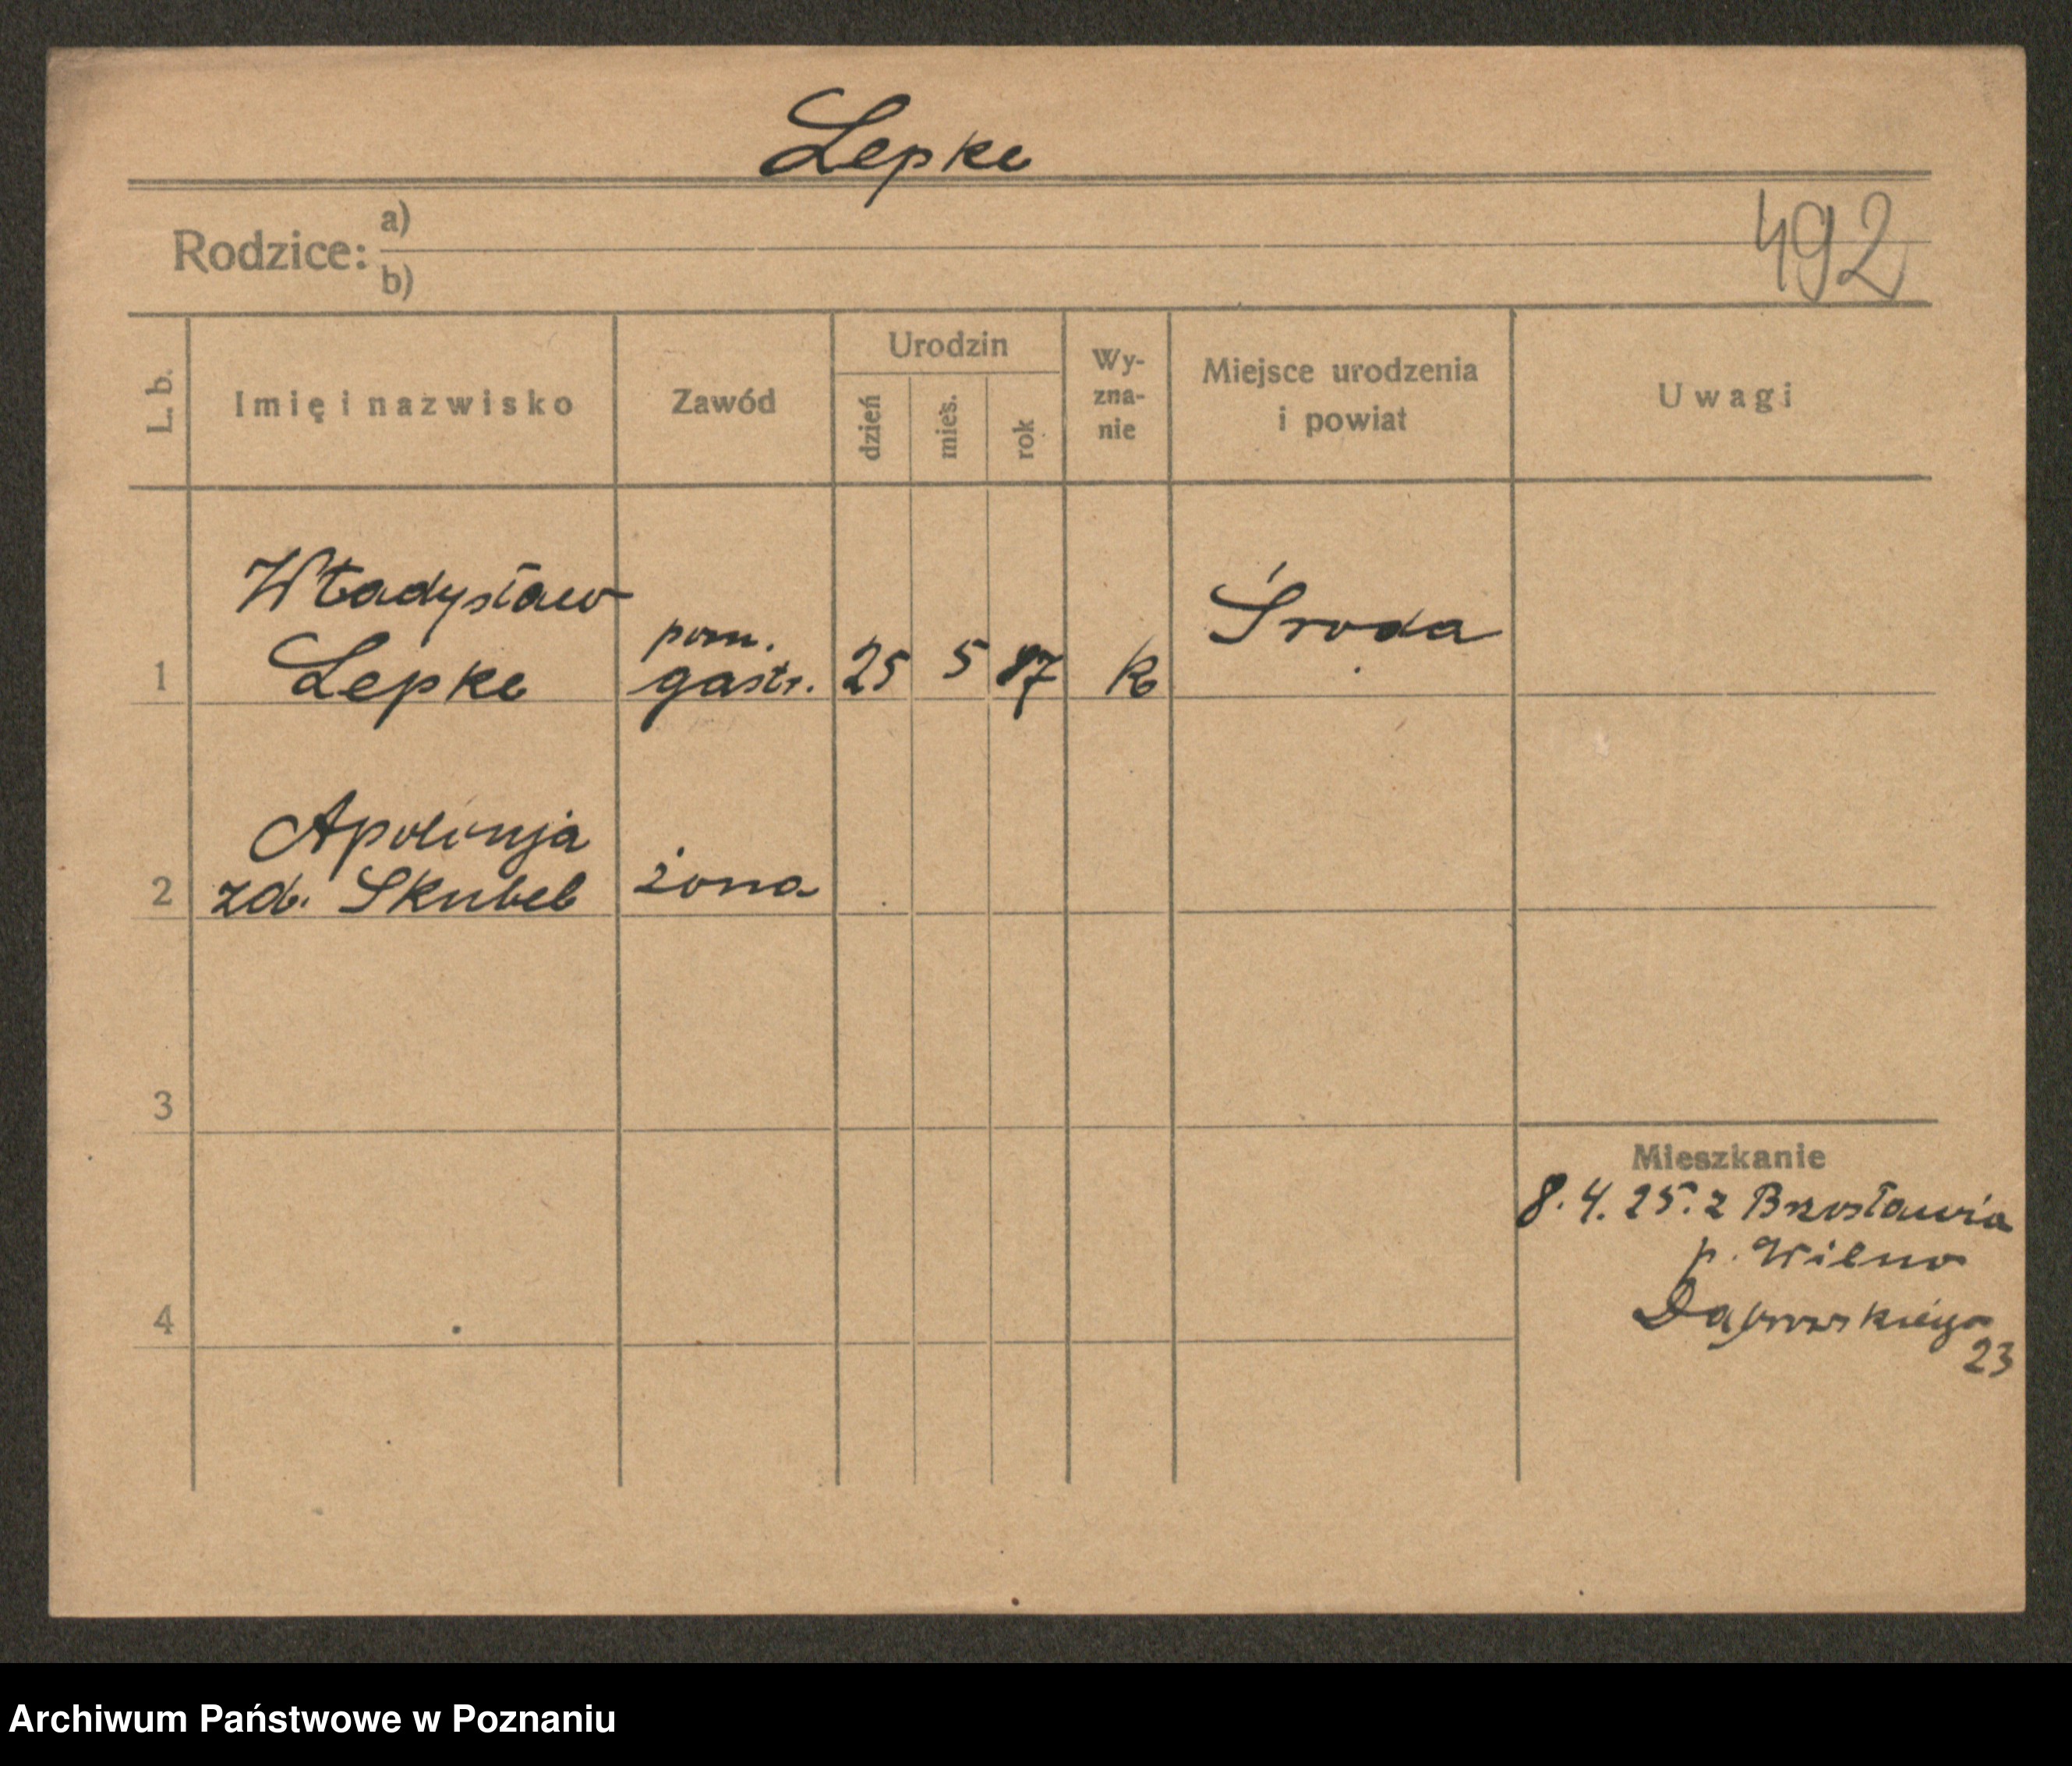 Lepke
Rodzice: a)
b)
492
L. b.
Imię i nazwisko
Zawód
Urodzin
dzień
mies.
rok
Wy-
zna-
nie
Miejsce urodzenia
i powiat
Uwagi
Władysław
Lepke
pom.
gastr.
1
25 5 87 k
Środa
Apolonja
zd. Skubel
2
żona
3
4
Mieszkanie
8. 4. 25. z
p. Wilno
Dąbrowskiego
23
Archiwum Państwowe w Poznaniu